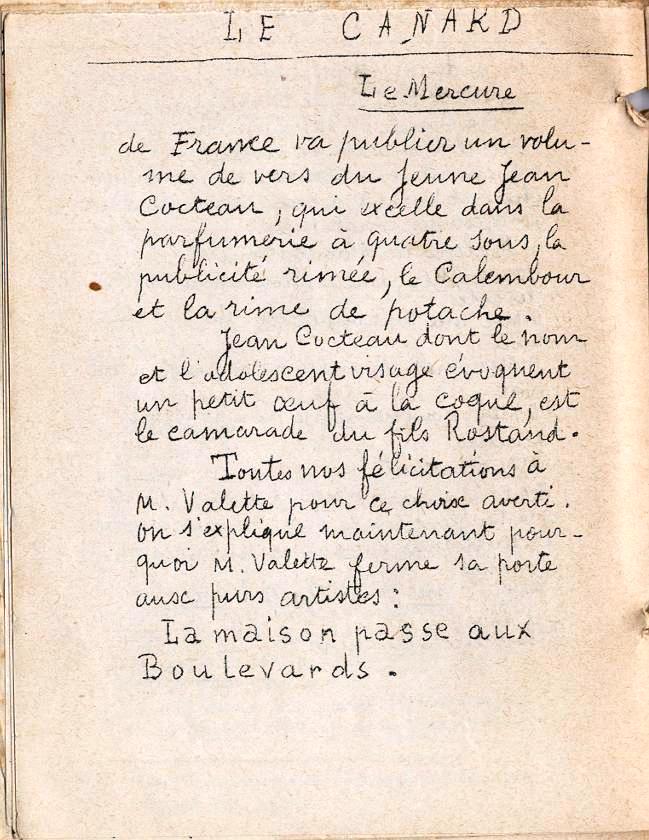 LE CANARD
Le Mercure
de France va publier un volu-
me de vers du jeune Jean
Cocteau, qui excelle dans la
parfumerie à quatre sous, la
publicité rimée, le Calembour
et la rime de potache.
Jean Cocteau dont le nom
et l'adolescent visage évoquent
un petit œuf à la coque, est
le camarade du fils Rostand.
Toutes nos félicitations à
M. Valette pour ce choix averti.
on s'explique maintenant pour-
quoi M. Valette ferme sa porte
aux purs artistes :
La maison passe aux
Boulevards.